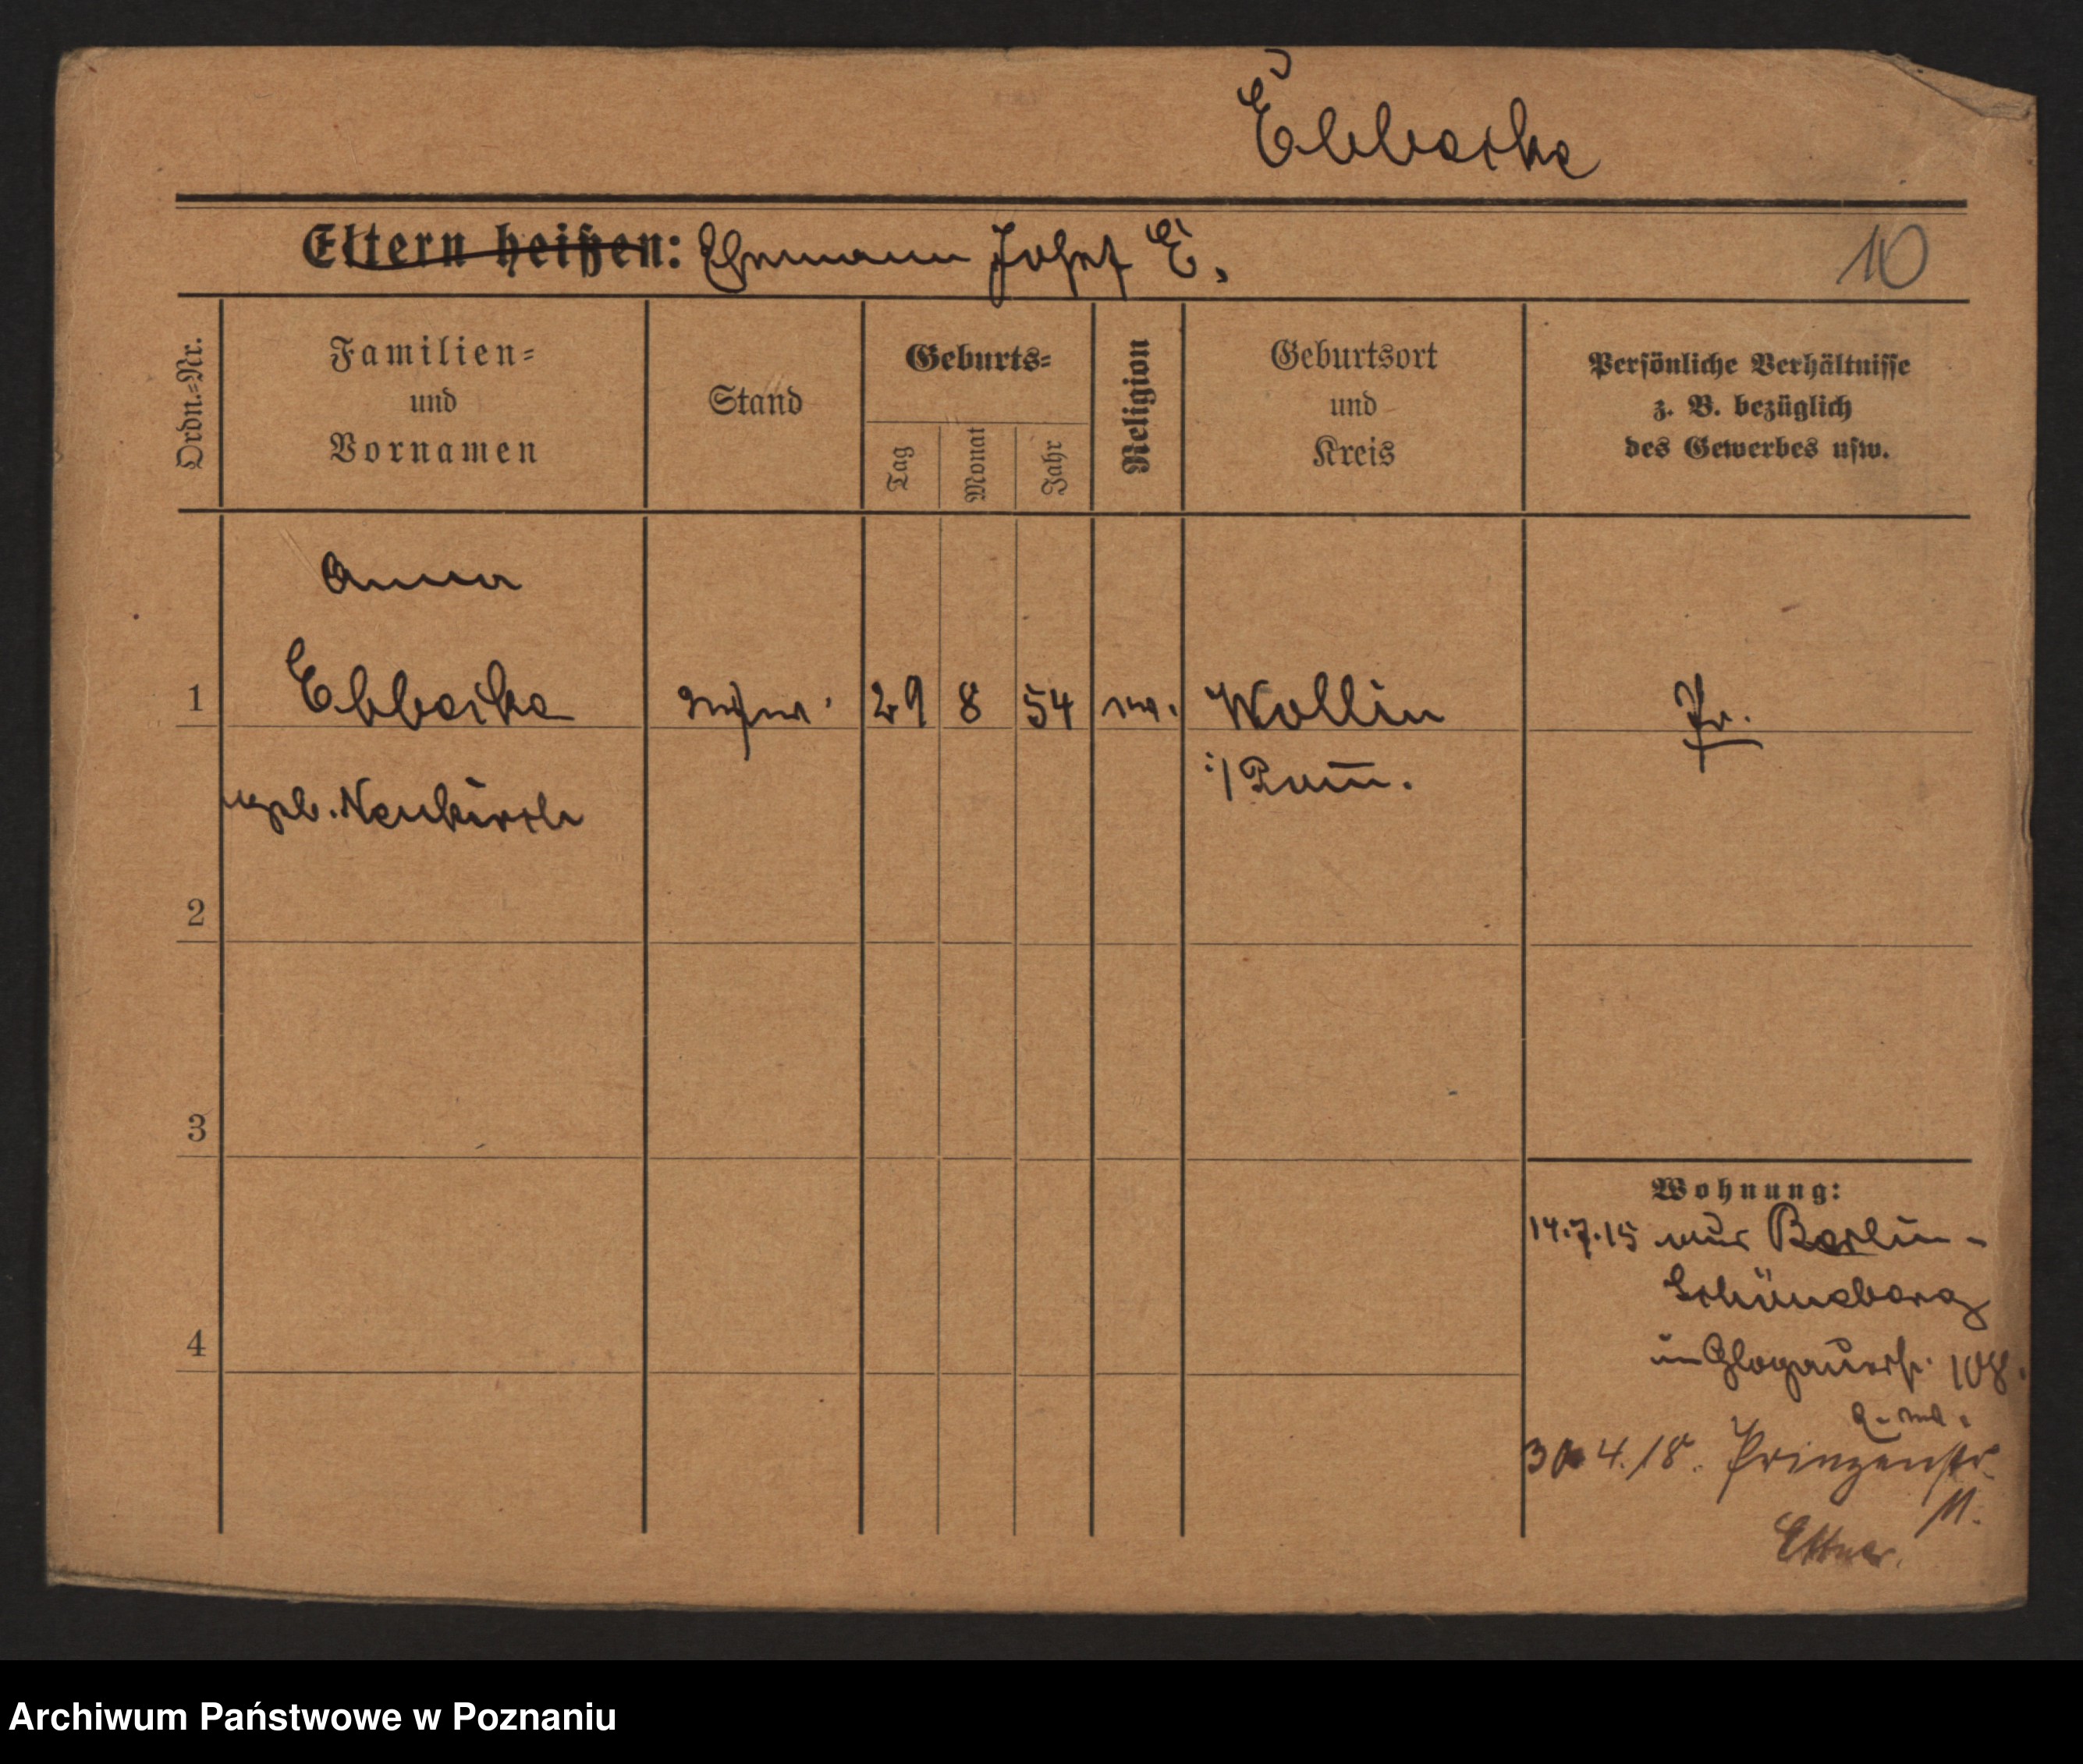 Ebbecke
Eltern heißen: Ehemann Josef E.
10
Ordn.-Nr.
Familien-
und
Vornamen
Stand
Geburts-
Tag
Monat
Jahr
Religion
Geburtsort
und
Kreis
Persönliche Verhältnisse
z. B. bezüglich
des Gewerbes usw.
Anna
1 29 8 54 Wollin Pr.
i/Pom.
geb. Neukirch
2
3
4
Wohnung:
14.7.15 aus Berlin-
Schöneberg
in Glogauerstr. 108.
30.4.18. Prinzenstr.
11.